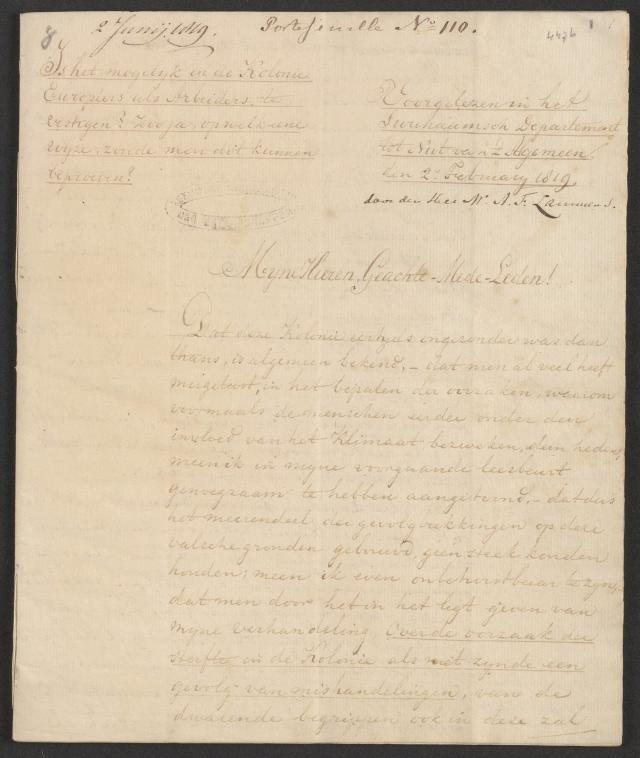 8
2 Junij 1819.
Portefeuille No 110.
4476
Is het mogelyk in de Kolonie
Europiers als Arbeiders, te
vestigen? Zoo ja, op welk eene
wyze, zoude men dit kunnen
beproeven?
Voorgelezen in het
Surinaamsch Departement
tot Nut van 't Algemeen
den 2n February 1819
door den Heer Mr. A. F. Lammens.
Myne Heeren, Geachte Mede-Leden!
Dat deze Kolonie eertyds ongezonder was dan
thans, is algemeen bekend, – dat men al veel heeft
misgetast, in het bepalen der oorzaken, waarom
voormaals de menschen eerder onder den
invloed van het Klimaat bezweken, dan heden,
meen ik in myne voorgaande leesbeurt
genoegzaam te hebben aangetoond, – dat dus
het meerendeel der gevolgtrekkingen op deze
valsche gronden gebouwd, geen steek konden
houden; meen ik even onbetwistbaar te zyn,
dat men door het in het ligt geven van
myne verhandeling Over de oorzaak der
sterfte in de Kolonie als niet zynde een
gevolg van mishandelingen, van de
dwalende begrippen ook in deze zal